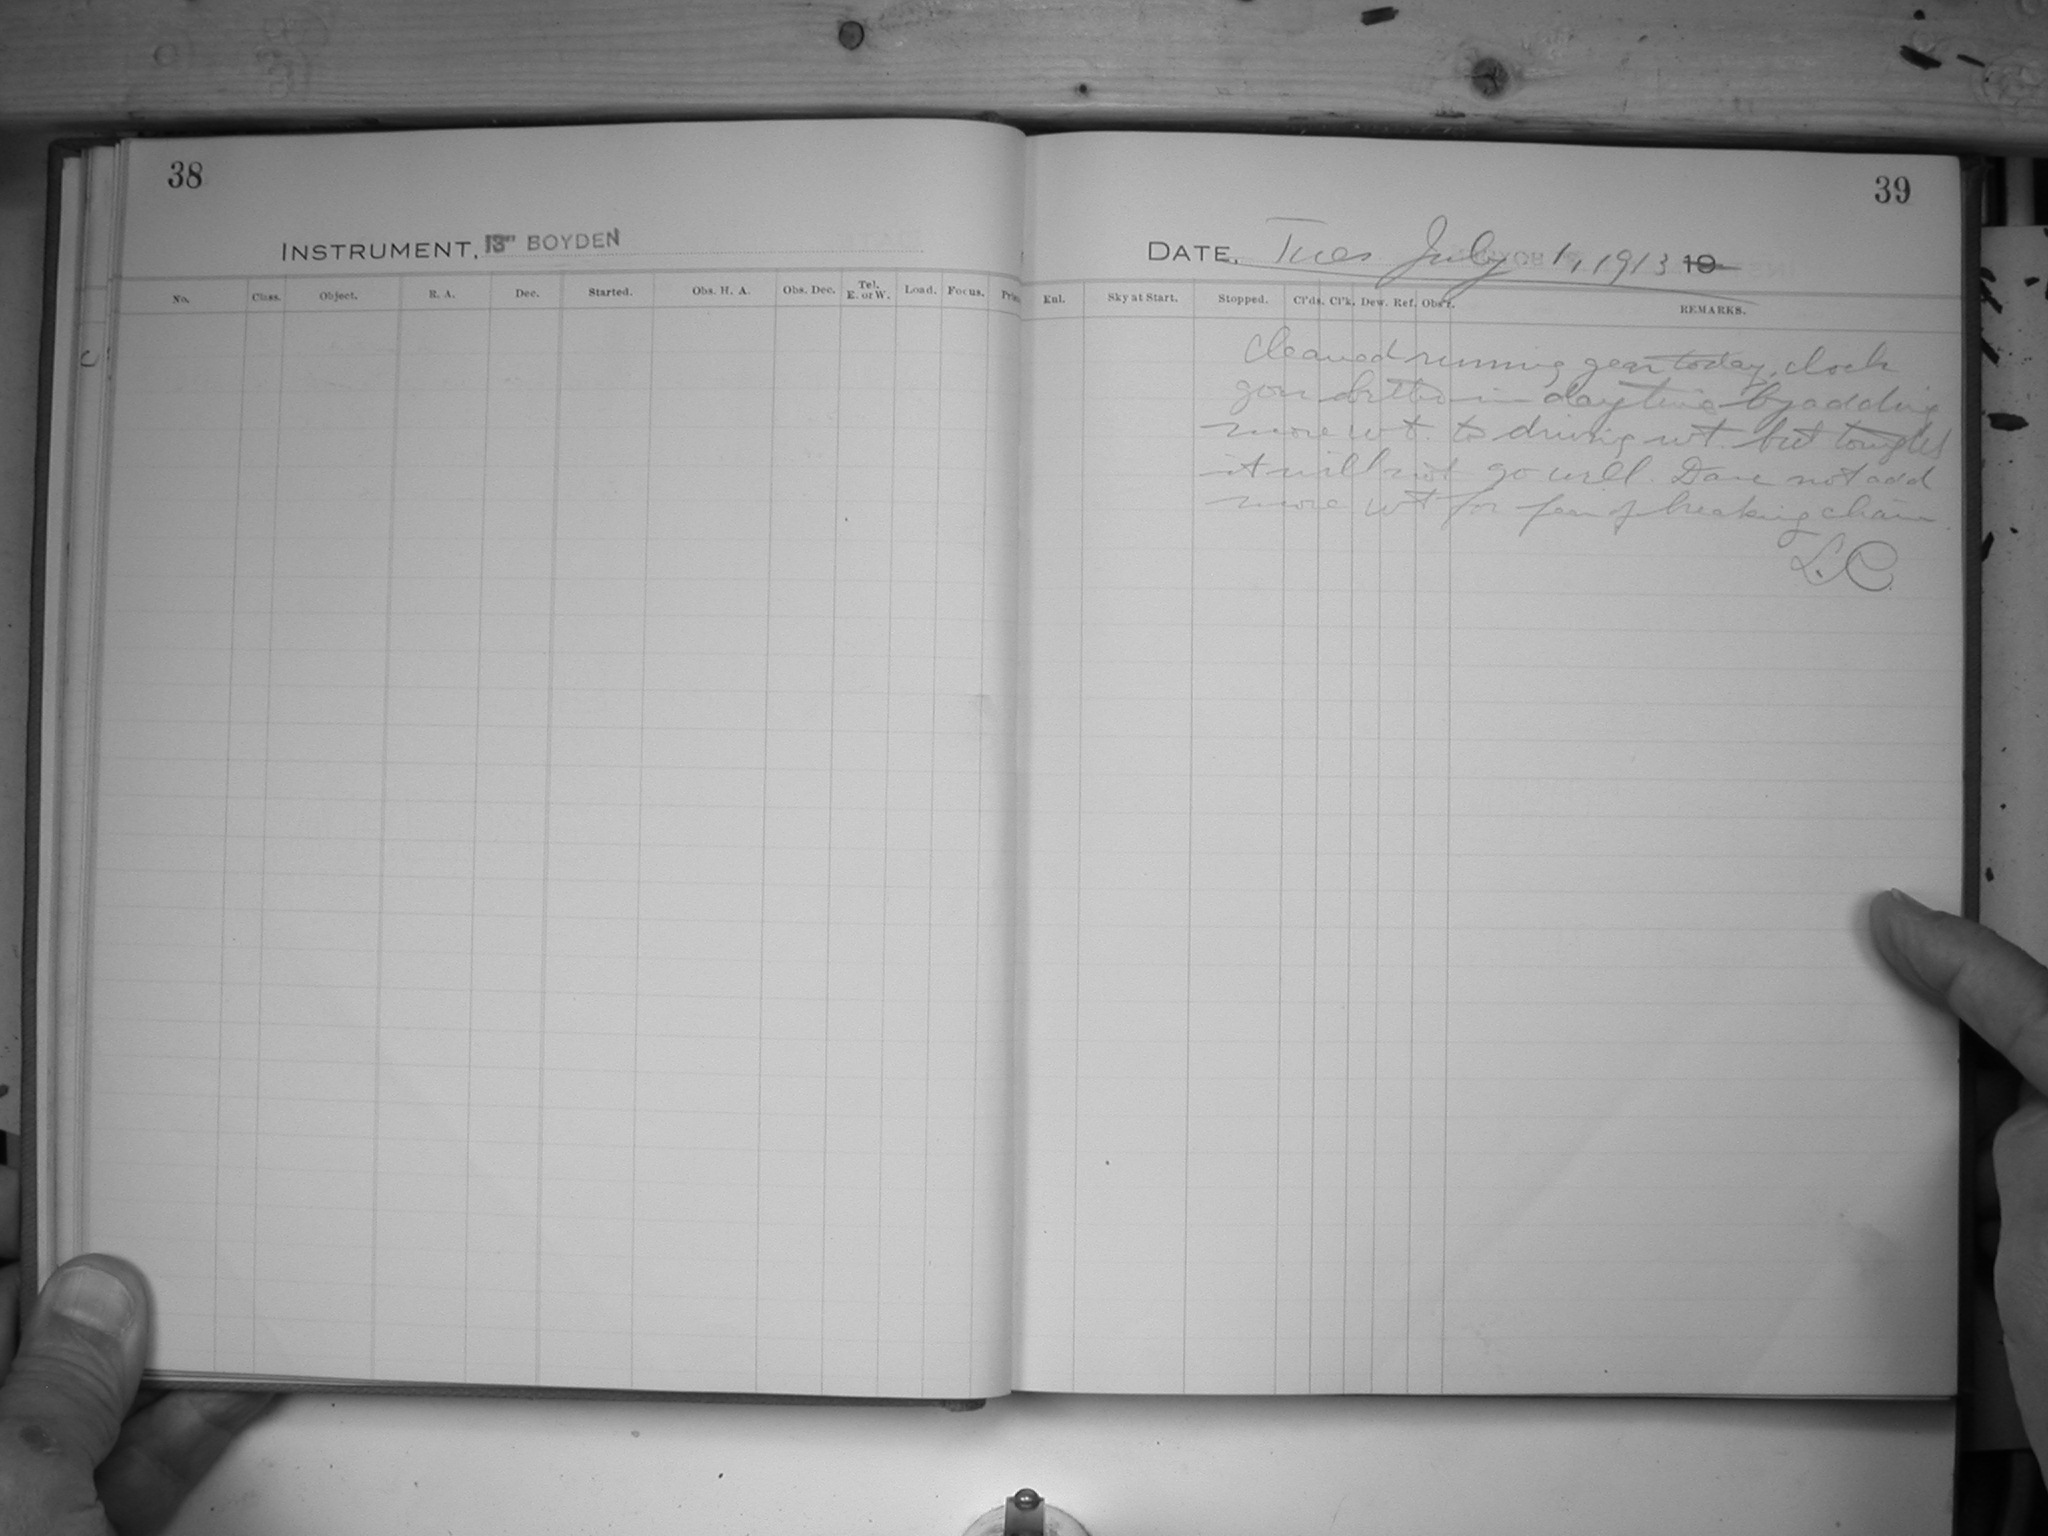 38
INSTRUMENT, 13" BOYDEN
No. Class. Object. R. A. Dec. Started. Obs. H. A. Obs. Dec. Tel. E. or W. Load. Focus.
39
DATE, Tues July 1, 1913 19
Enl. Sky at Start. Stopped. Cl'ds. Cl'k. Dew. Ref. Obs'r. REMARKS.
Cleaned running gear today, clock
goes better in daytime by adding
more wt. to driving wt. but tonight
it will not go well. Dare not add
more wt for fear of breaking chain.
L. C.